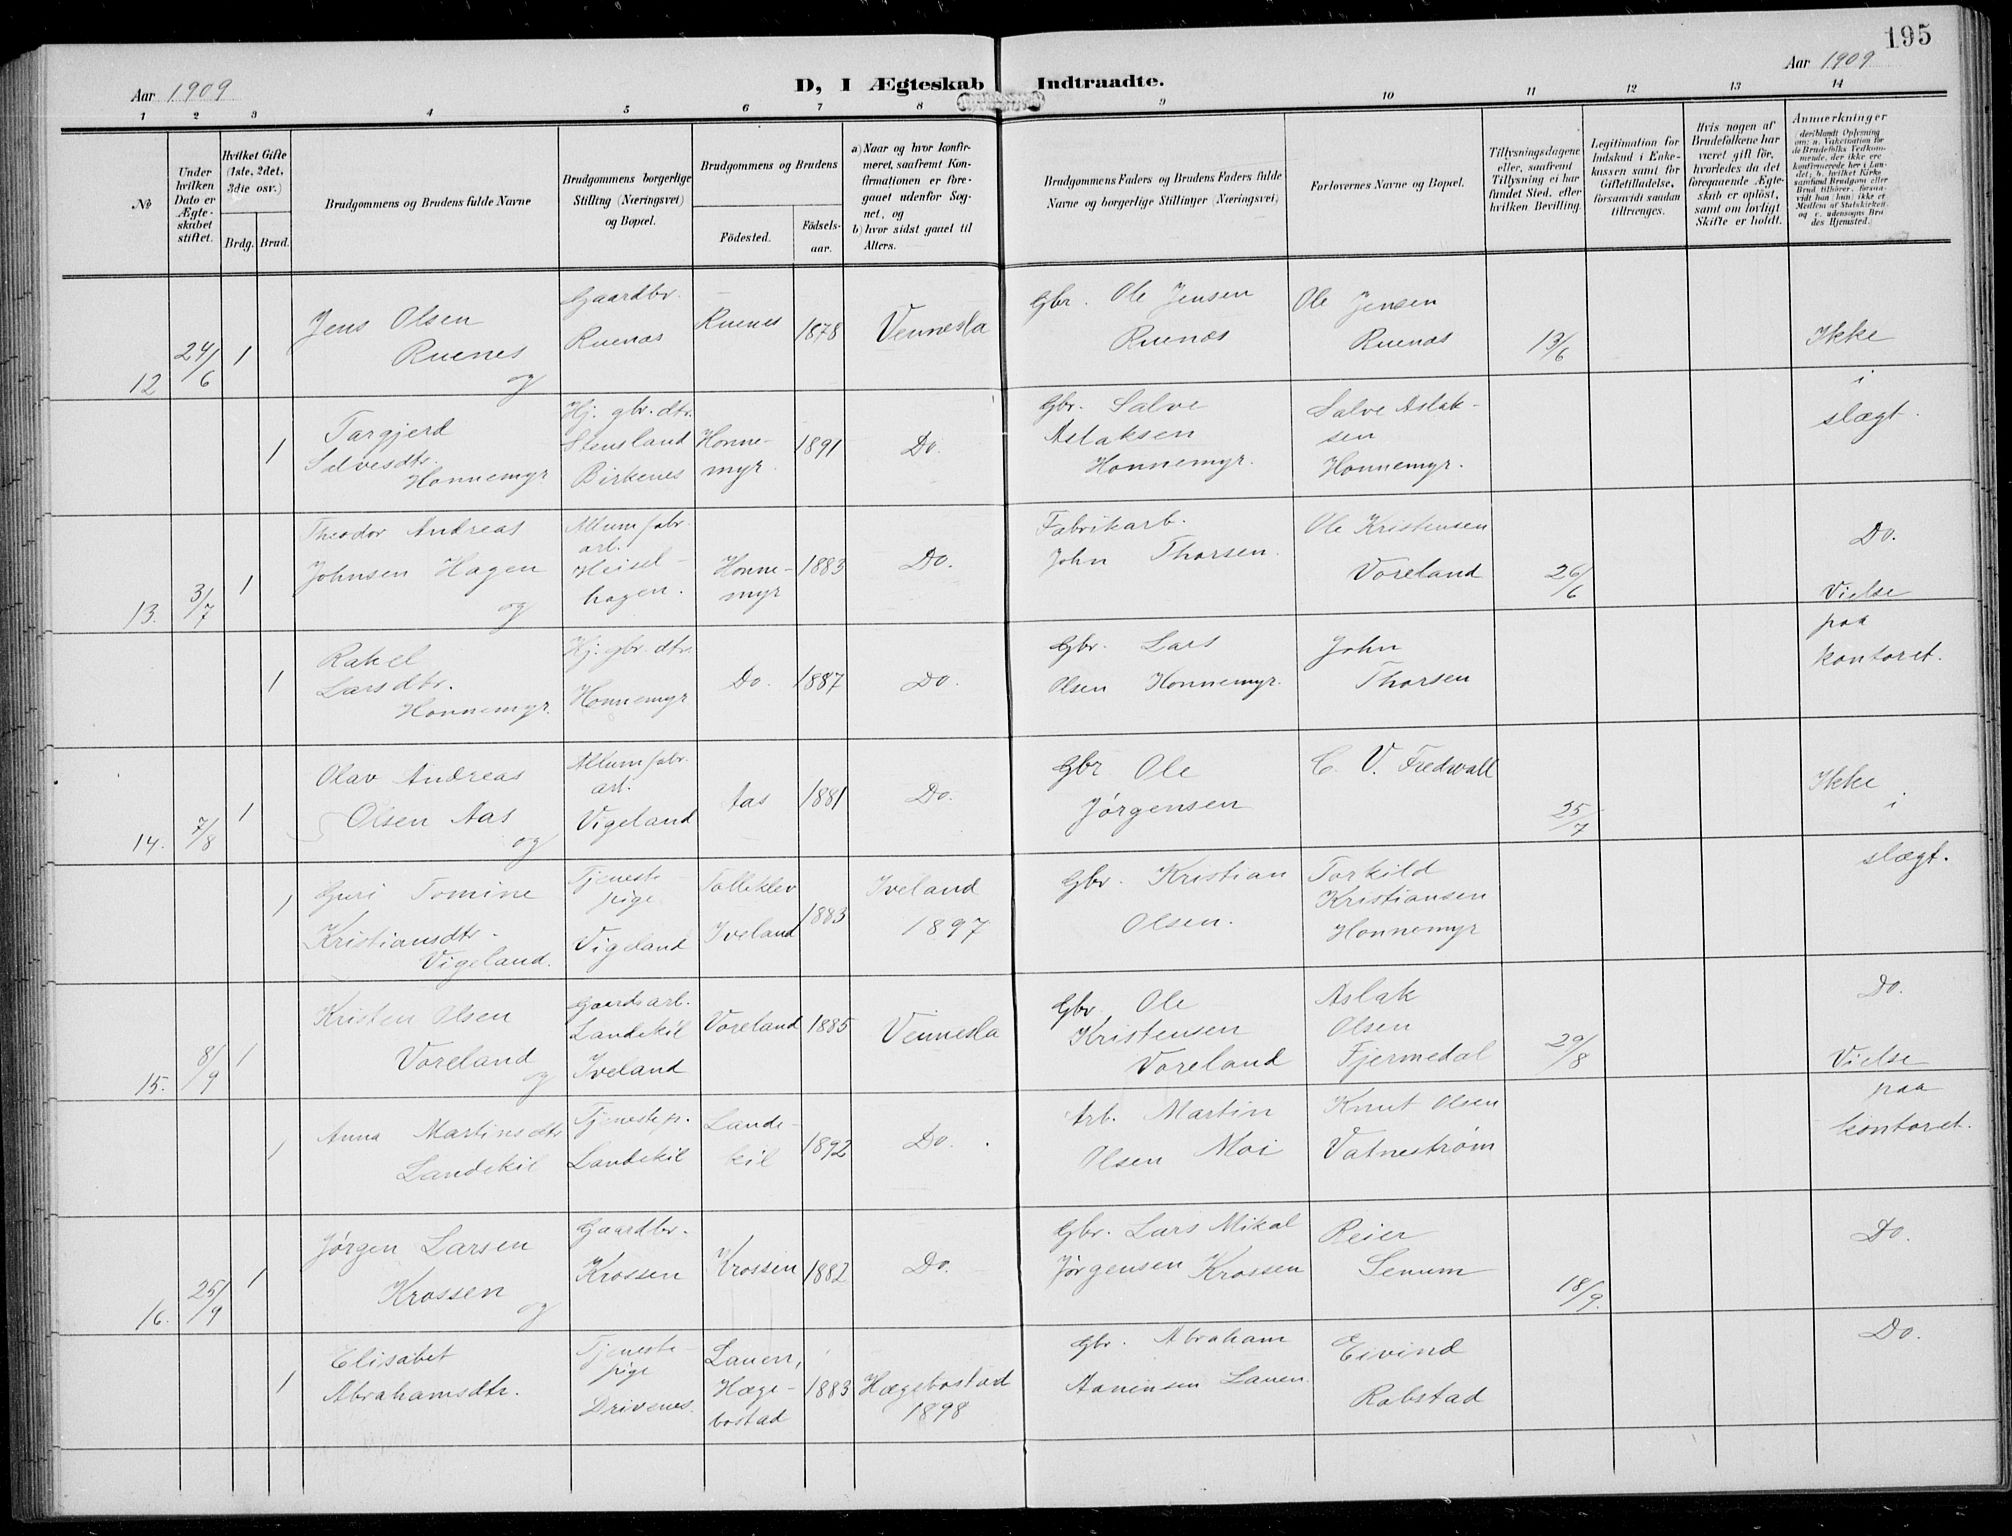 195
Aar 1909
D, I Ægteskab Indtraadte.
Aar 1909
1 2 3 4 5 6 7 8 9 10 11 12 13 14
No
Under hvilken Dato er Ægteskabet stiftet.
Hvilket Gifte (1ste, 2det, 3die osv.)
Brdg. Brud.
Brudgommens og Brudens fulde Navne
Brudgommens borgerlige Stilling (Næringsvei) og Bopæl.
Brudgommens og Brudens
Födested.
Födsels-aar.
a) Naar og hvor konfirmeret, saafremt Konfirmationen er foregaaet udenfor Sognet, og
b) hvor sidst gaaet til Alters.
Brudgommens Faders og Brudens Faders fulde Navne og borgerlige Stillinger (Næringsvei)
Forlovernes Navne og Bopæl.
Tillysningsdagene eller, saafremt Tillysning ei har fundet Sted, efter hvilken Bevilling.
Legitimation for Indskud i Enkekassen samt for Giftetilladelse, forsaavidt saadan tiltrænges.
Hvis nogen af Brudefolkene har været gift för, hvorledes da det foregaaende Ægteskab er oplöst, samt om lovligt Skifte er holdt.
Anmerkninger
12 24/6 1 Jens Olsen Ruenes og
Gaardbr. Ruenæs
Ruenes 1878 Vennesla
Gbr. Ole Jensen Ruenæs
Ole Jensen Ruenæs
13/6
Ikke i slægt.
1 Targjerd Salvesdtr. Honnemyr
Hj. gbr. dtr. Stensland Birkenes
Honnemyr. 1891 Do.
Gbr. Salve Aslaksen Honnemyr.
Salve Aslaksen Honnemyr.
13. 3/7 1 Theodor Andreas Johnsen Hagen og
Allumfabr. arb. Heiselhagen.
Honnemyr 1883 Do.
Fabrikarb. John Thorsen.
Ole Kristensen Voreland
26/6
Do.
Vielse paa kontoret.
1 Rakel Larsdtr. Honnemyr.
Hj. gbr. dtr. Honnemyr
Do. 1887 Do.
Gbr. Lars Olsen Honnemyr.
John Thorsen
14. 7/8 1 Olav Andreas Olsen Aas og
Allumfabr. arb. Vigeland
Aas 1881 Do.
Gbr Ole Jørgensen
C. V. Fredwall
25/7
Ikke i slægt.
1 Guri Tomine Kristiansdtr. Vigeland.
Tjenestepige Vigeland
Tolleklev Iveland 1883 Iveland 1897
Gbr. Kristian Olsen.
Torkild Kristiansen Honnemyr
15. 8/9 1 Kristen Olsen Voreland og
Gaardsarb. Landekil Iveland
Voreland 1885 Vennesla
Gbr. Ole Kristensen Voreland
Aslak Olsen Fjermedal
29/8
Do.
Vielse paa kontoret.
1 Anna Martinsdtr Landekil
Tjenestep. Landekil
Landekil 1892 Do.
Arb. Martin Olsen Moi
Knut Olsen Vatnestrøm
16. 25/9 1 Jørgen Larsen Krossen og
Gaardbr. Krossen
Krossen 1882 Do.
Gbr. Lars Mikal Jørgensen Krossen
Reier Senum
18/9.
Do.
1 Elisabet Abrahamsdtr.
Tjenestepige Drivenes.
Lauen, Hægebostad 1883 Hægebostad 1898
Gbr. Abraham Aanensen Lauen.
Eivind Robstad
Do.